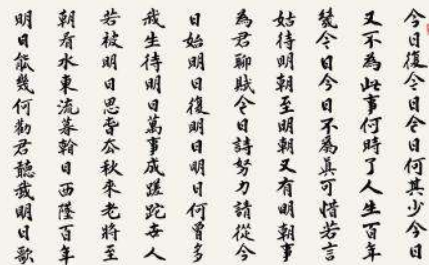 今日復今日今日何其少今日
又不為此事何時了人生百年
幾今日今日不為真可惜若言
姑待明朝至明朝又有明朝事
為君聊賦今日詩努力請從今
日始明日復明日明日何曾多
我生待明日萬事成蹉跎世人
若被明日累春去秋來老將至
朝看水東流暮看日西墜百年
明日能幾何勸君聽我明日歌